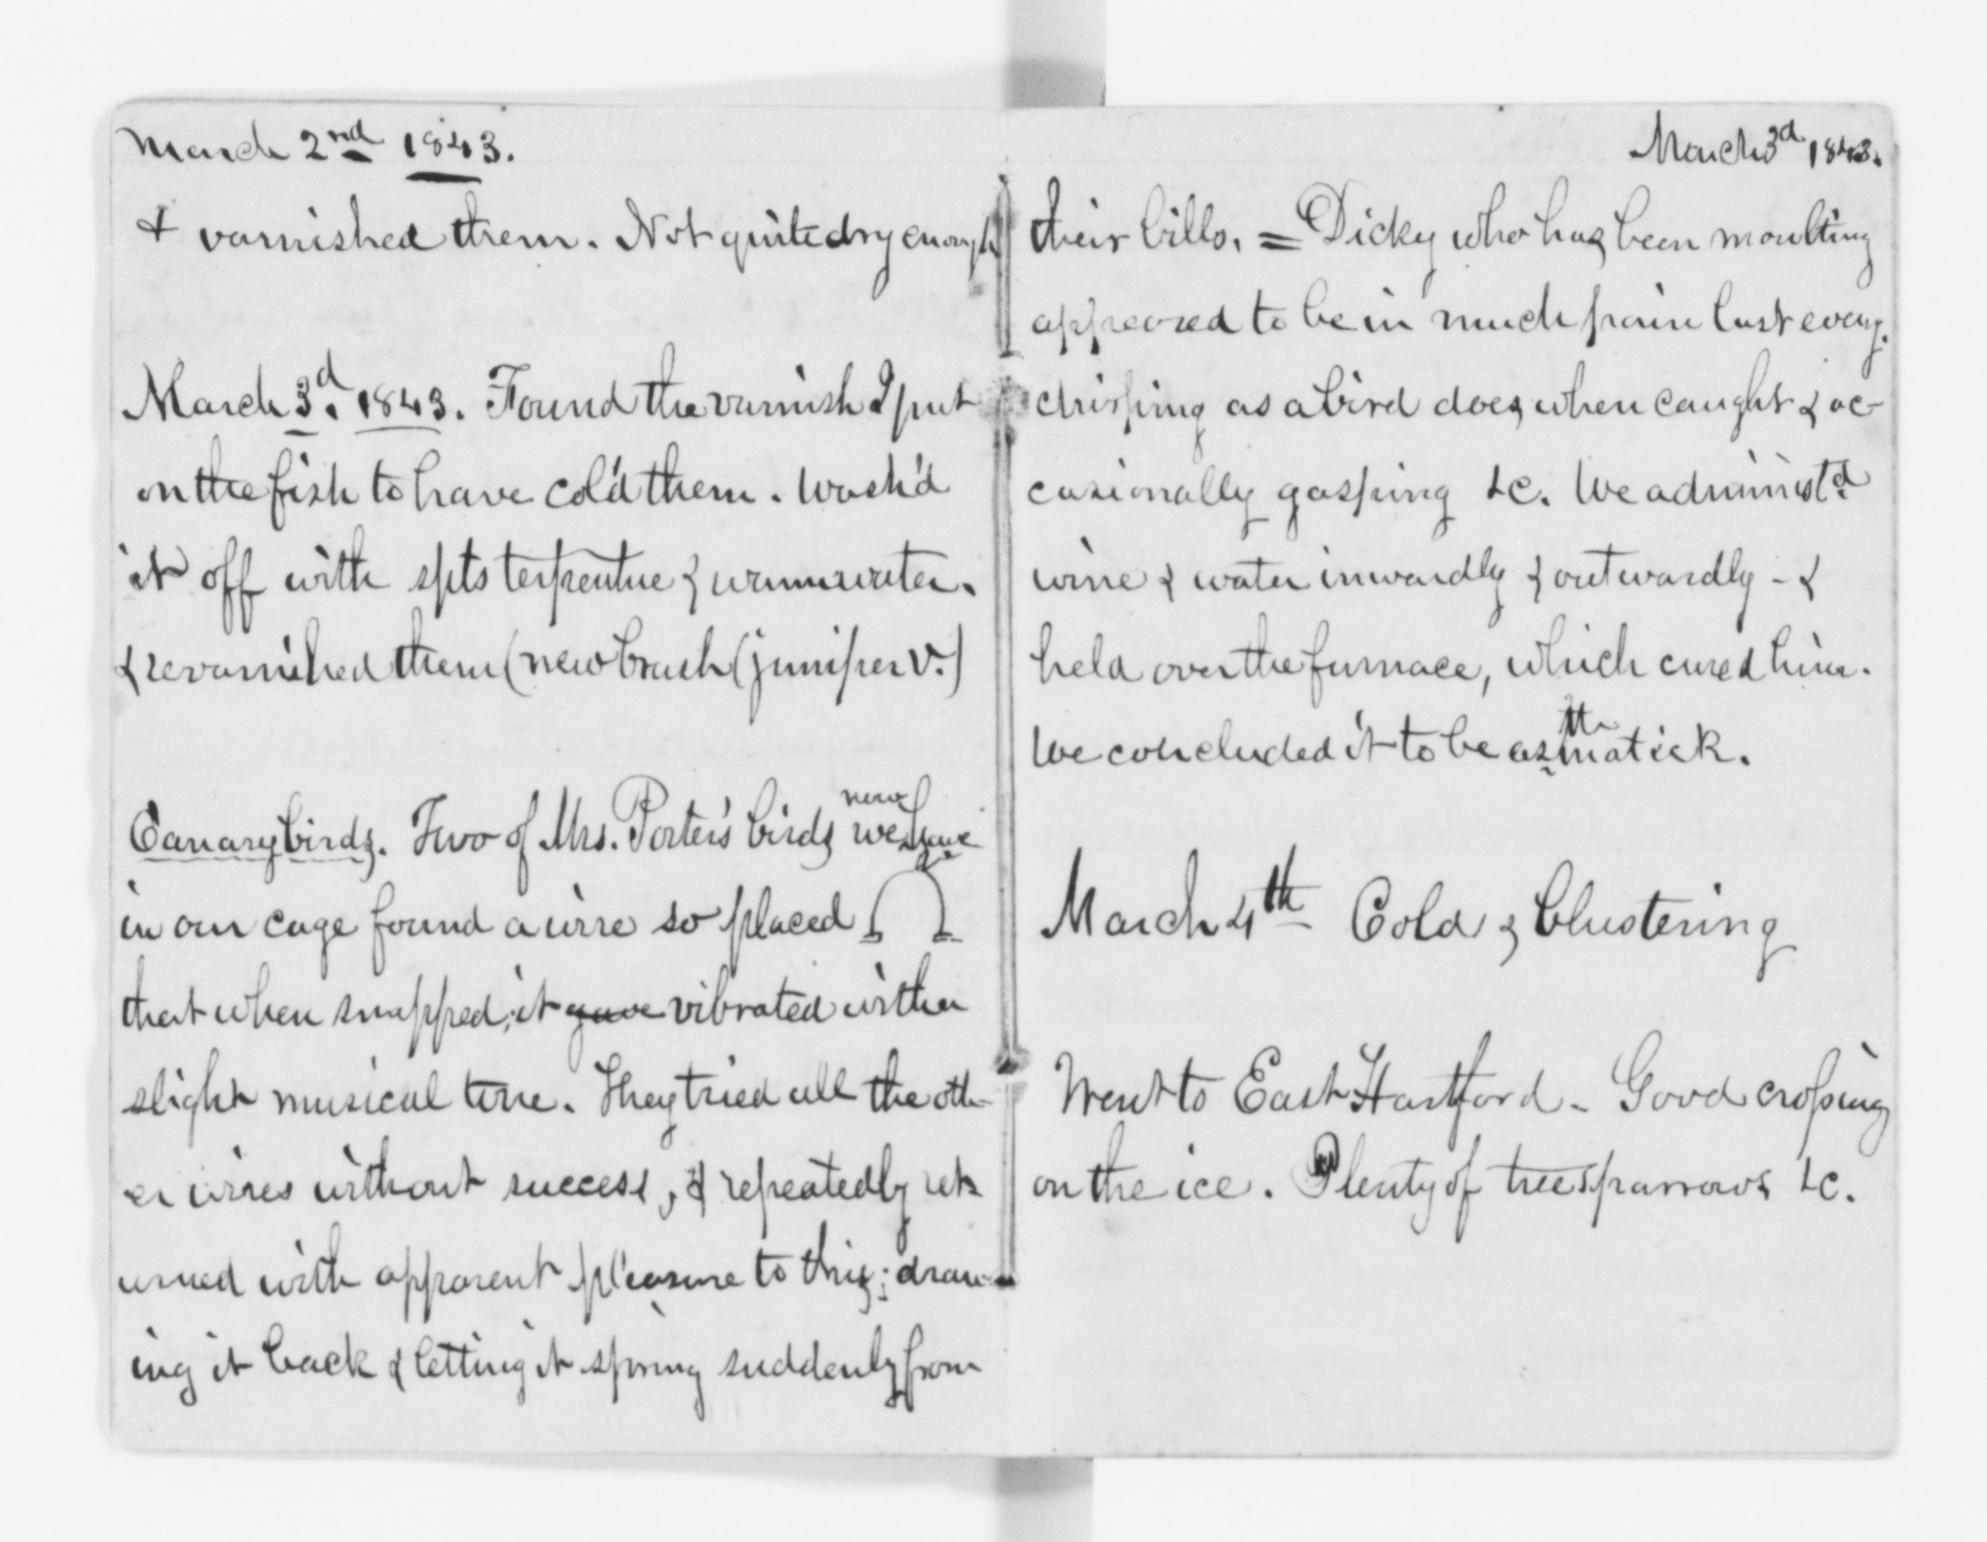 March 2nd 1843.
& varnished them. Not quite dry enough
March 3d. 1843. Found the varnish I put
on the fish to have col'd them. Wash'd
it off with spts terpentue & warm water.
& revarnished them (new brush (juniper v.)
Canary birds. Two of Mrs. Porter's birds now we have
in our cage found a wire so placed
that when snapped, it gave vibrated with a
slight musical tone. They tried all the oth-
er wires without success, & repeatedly ret-
urned with apparent pleasure to this; draw-
ing it back & letting it spring suddenly from
March 3d 1843.
their bills. = Dicky who has been moulting
appeared to be in much pain last eveng.
chirping as a bird does, when caught & oc-
casionally gasping &c. We administd.
wine & water inwardly & outwardly - &
held over the furnace, which cured him.
We concluded it to be asthmatick.
March 4th Cold & blustering
Went to East Hartford - Good crossing
on the ice. Plenty of tree sparrows &c.